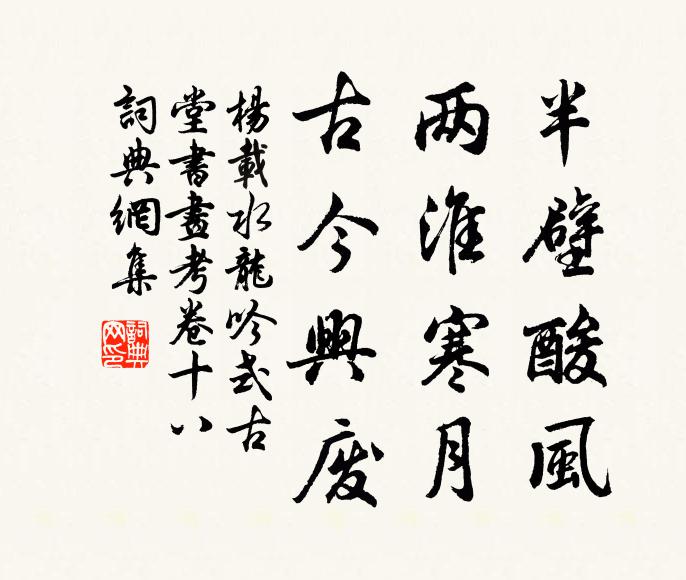 半壁酸風
两淮寒月
古今興廢
楊載水龍吟式古
堂書畫考卷十八
詞典網集
詞典
网印